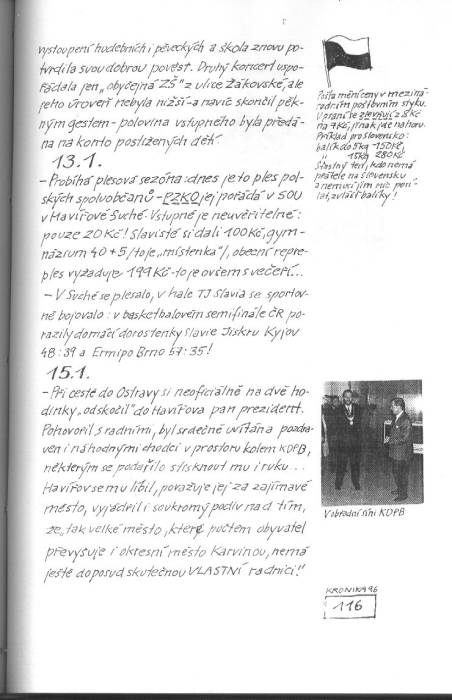 vystoupení hudebních i pěveckých a škola znovu po-
tvrdila svou dobrou pověst. Druhý koncert uspo-
řádala jen „obyčejná ZŠ" z ulice Žákovské, ale
jeho úroveň nebyla nižší a navíc skončil pěk-
ným gestem - polovina vstupného byla předá-
na na konto postižených dětí.
13.1.
- Probíhá plesová sezóna: dnes je to ples pol-
ských spoluobčanů - PZKO jej pořádá v SOU
v Havířově Suché. Vstupné je neuvěřitelné:
pouze 20 Kč! Slavisté si dali 100 Kč, gym-
názium 40+5 /to je „místenka"/, obecní repre-
ples vyžaduje 199 Kč - to je ovšem s večeří...
- V Suché se plesalo, v hale TJ Slavia se sportov-
ně bojovalo: v basketbalovém semifinále ČR po-
razily domácí dorostenky Slavie Jiskru Kyjov
48:39 a Ermipo Brno 57:35!
15.1.
- Při cestě do Ostravy si neoficiálně na dvě ho-
dinky „odskočil" do Havířova pan prezident.
Pohovořil s radními, byl srdečně uvítán a pozdra-
ven i náhodnými chodci v prostoru kolem KDPB,
některým se podařilo stisknout mu i ruku...
Havířov se mu líbil, považuje jej za zajímavé
město, vyjádřil i soukromý podiv nad tím,
že „tak velké město, které počtem obyvatel
převyšuje i okresní město Karvinou, nemá
ještě doposud skutečnou VLASTNÍ radnici!"
Pošta mění ceny v meziná-
rodním poštovním styku.
Vpraní se zlevňují z 8 Kč
na 7 Kč, jinak jde nahoru.
Příklad pro Slovensko:
balík do 5 kg 150 Kč,
" 15 kg 280 Kč
Šťastný ten, kdo nemá
přátele na Slovensku
a nemusí jim nic posí-
lat, zvlášť balíky!
V obřadní síni KDPB
KRONIKA 96
116